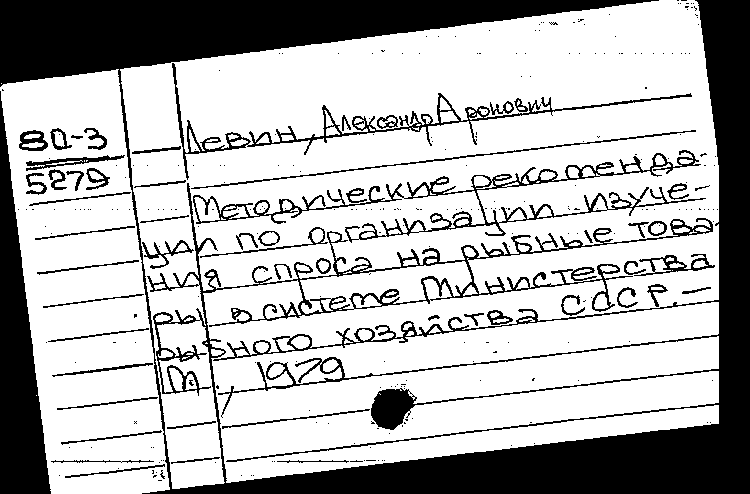 80-3
5279
Левин, Александр Аронович
Методические рекоменда-
ции по организации изуче-
ния спроса на рыбные това-
ры в системе Министерства
рыбного хозяйства СССР. —
М., 1979